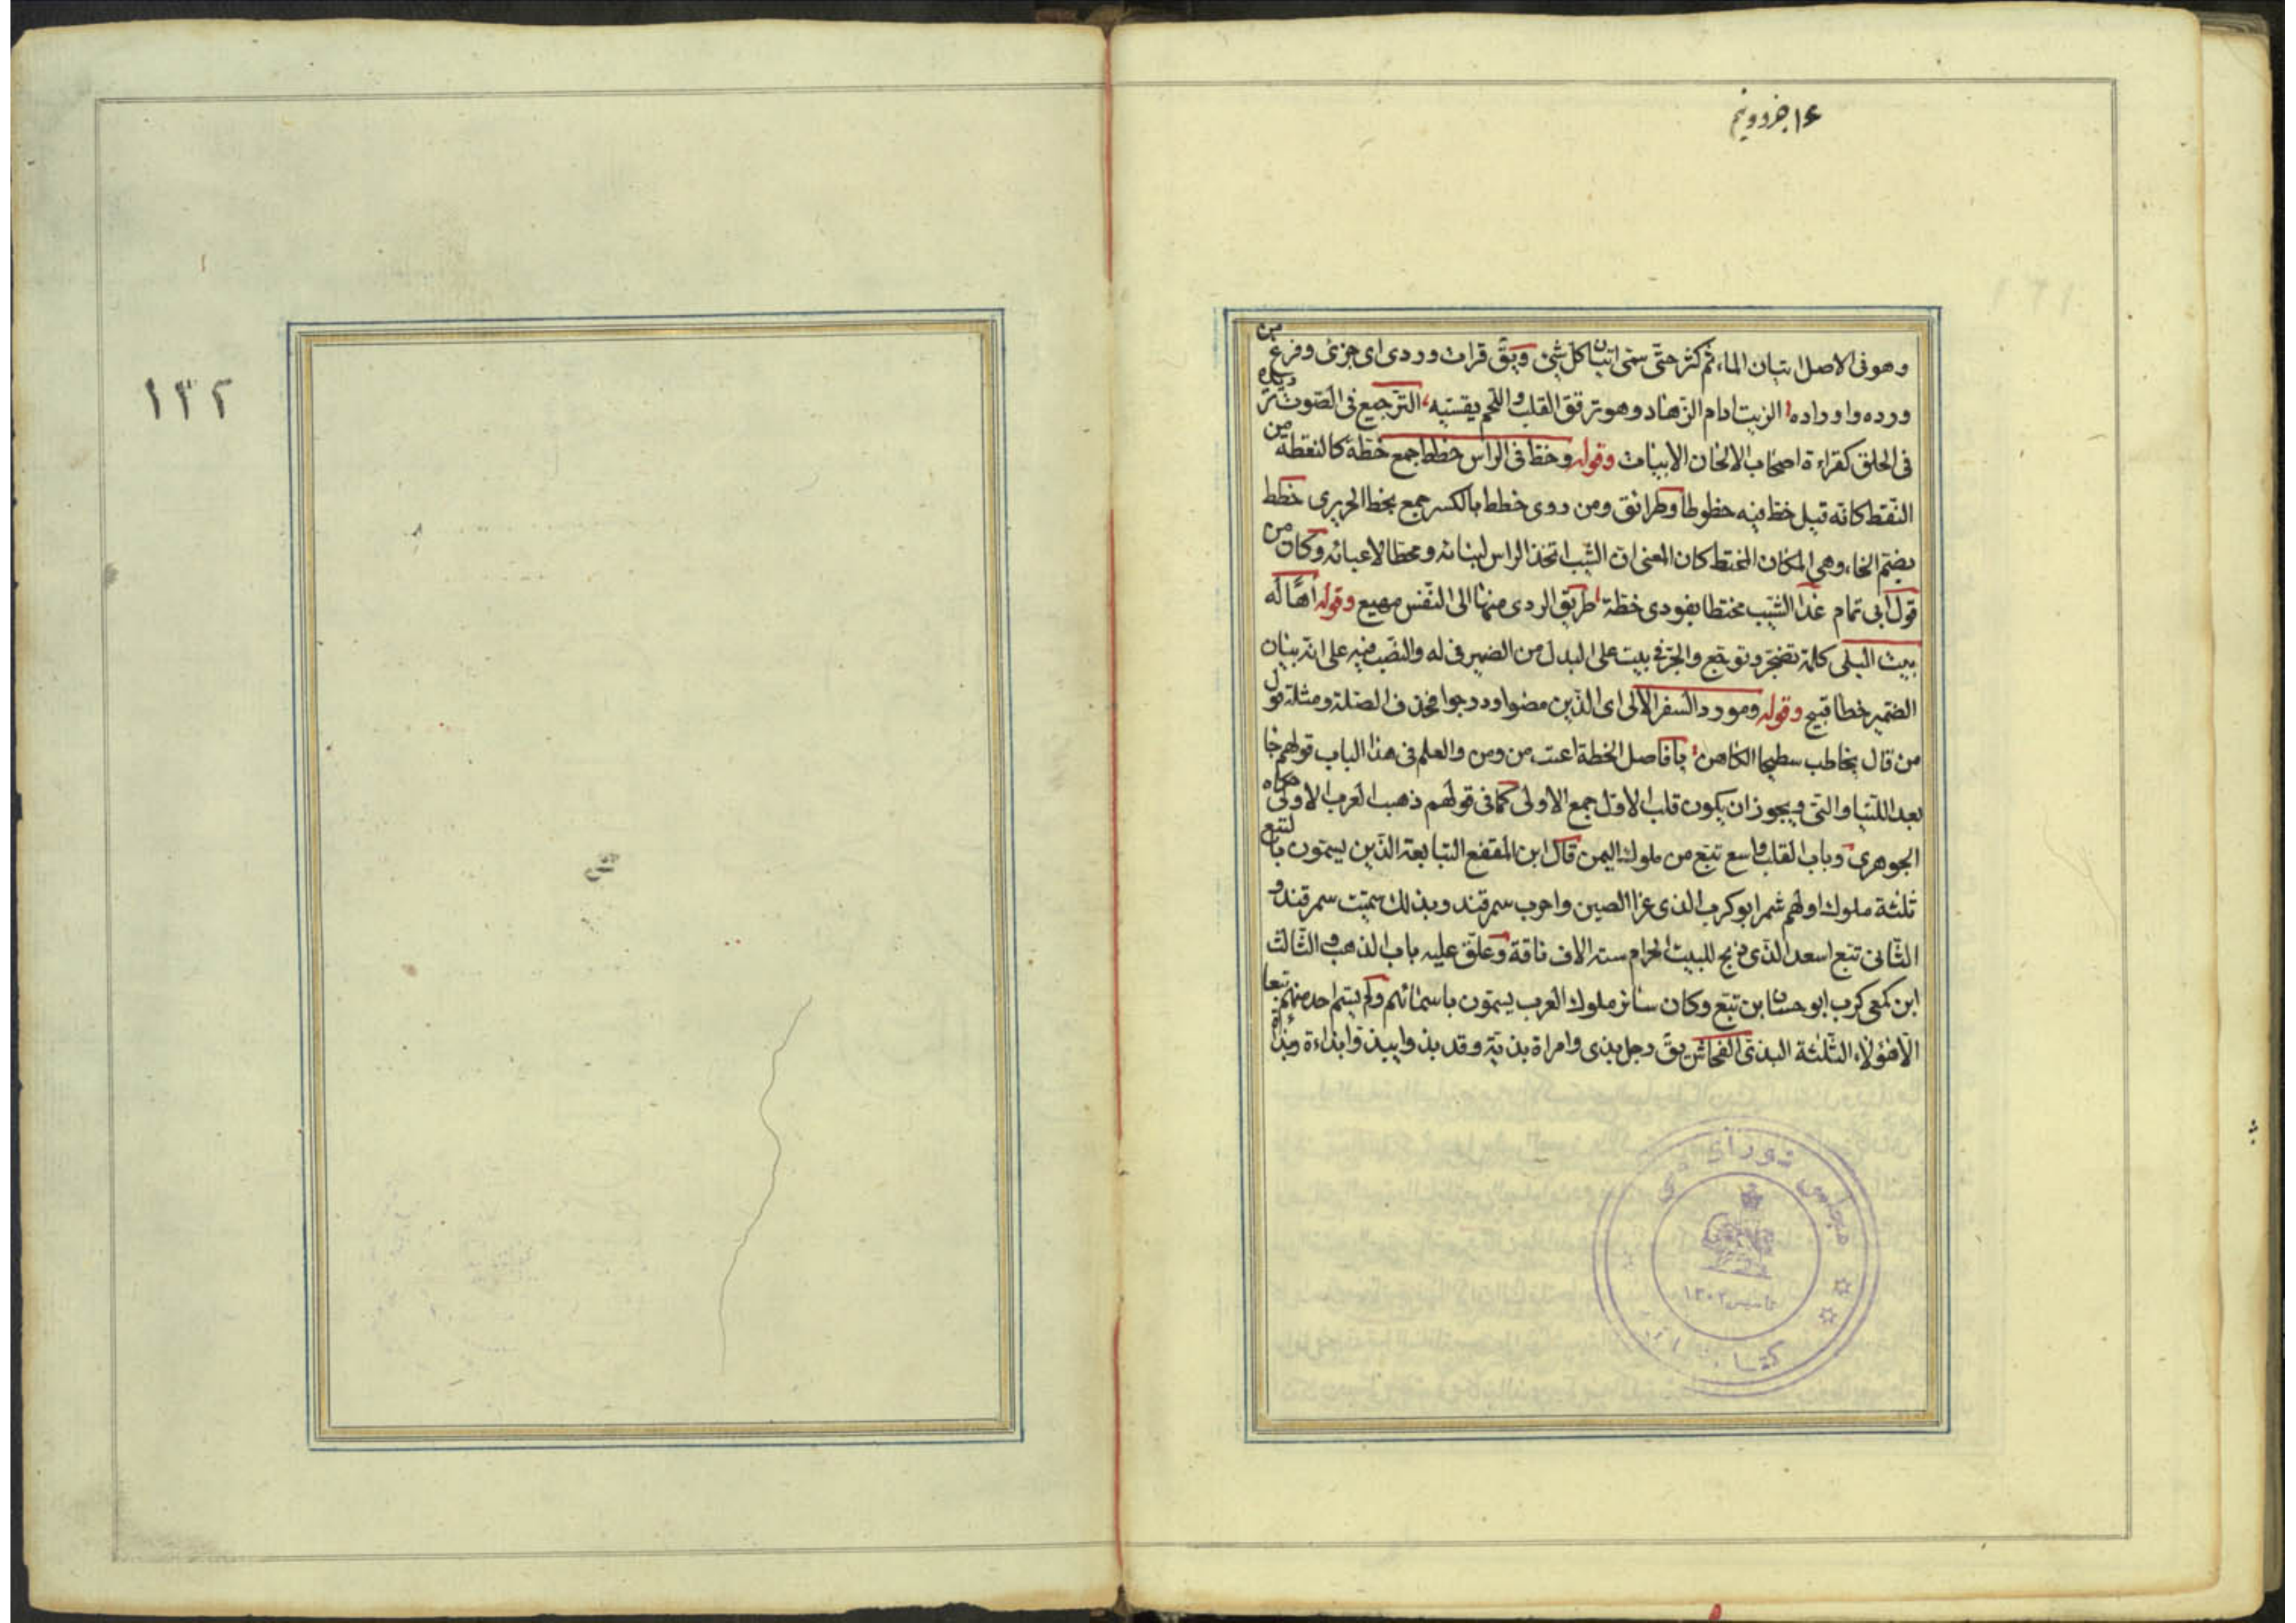 ١٤ جزو ونیم
وهو فی الاصل اتیان الماء ثم کثر حتّی سمّی اتیان کل شیٔ ویق قرات وردی ای جزئی وفرغ من
ورده واوراده الزیت ادام الزهاد وهو ترقق القلب واللحم یقسیه الترجیع فی الصّوت تردیده
فی الحلق کقراءة اصحاب الالحان الابیات وقوله وخط فی الراس خططا جمع خطّة کالنقطة من
النقط کانه قیل خط فیه خطوطا وطرائق ومن روی خططا بالکسر جمع بخط الحریری خطط
بضم الخاء وهی المکان المختط کان المعنی ان الشیب اتخذ الراس لبنائه ومحطّا لاعبائه وکان من
قول ابی تمام غدا الشیب مختطا بفودی خطة طریق الردی منها الی النفس مهیع وقوله اهّا له
بیت البلی کلمة تضجّر وتوجّع والجرّ فی بیت علی البدل من الضمیر فی له والنصب فیه علی انه بیان
الضمیر خطا قبیح وقوله ومورد السفر الالی ای الذین مضوا ودرجوا فحذف الصلة ومثله قول
من قال یخاطب سطیحا الکاهن یا فاصل الخطة اعیت من ومن والعلم فی هذا الباب قولهم جا
بعد اللتیا والتی ویجوز ان یکون قلب الاول جمع الاولی کما فی قولهم ذهب العرب الاولی حکاه
الجوهری وباب القلب واسع تبّع من ملوک الیمن قال ابن المقفع التبابعة الذین یسمّون بالتبع
ثلثة ملوک اولهم شمر ابو کرب الذی غزا الصین واخرب سمرقند وبذلک سمیت سمرقند و
الثانی تبّع اسعد الذی ذبح للبیت الحرام ستة الاف ناقة وعلّق علیه باب الذهب والثالث
ابن کمعی کرب ابو حسّان بن تبّع وکان سائر ملوک العرب یسمّون باسمائهم ولم یسم احد منهم تبعا
الّا هؤلاء الثّلثة البذی الفحاش یق رجل بذی وامراة بذیة وقد بذوا یبذو ابذاءة وبذأة
مجلس شورای ملی
تاسیس ١٣٠٢
کتابخانه
١٣٢